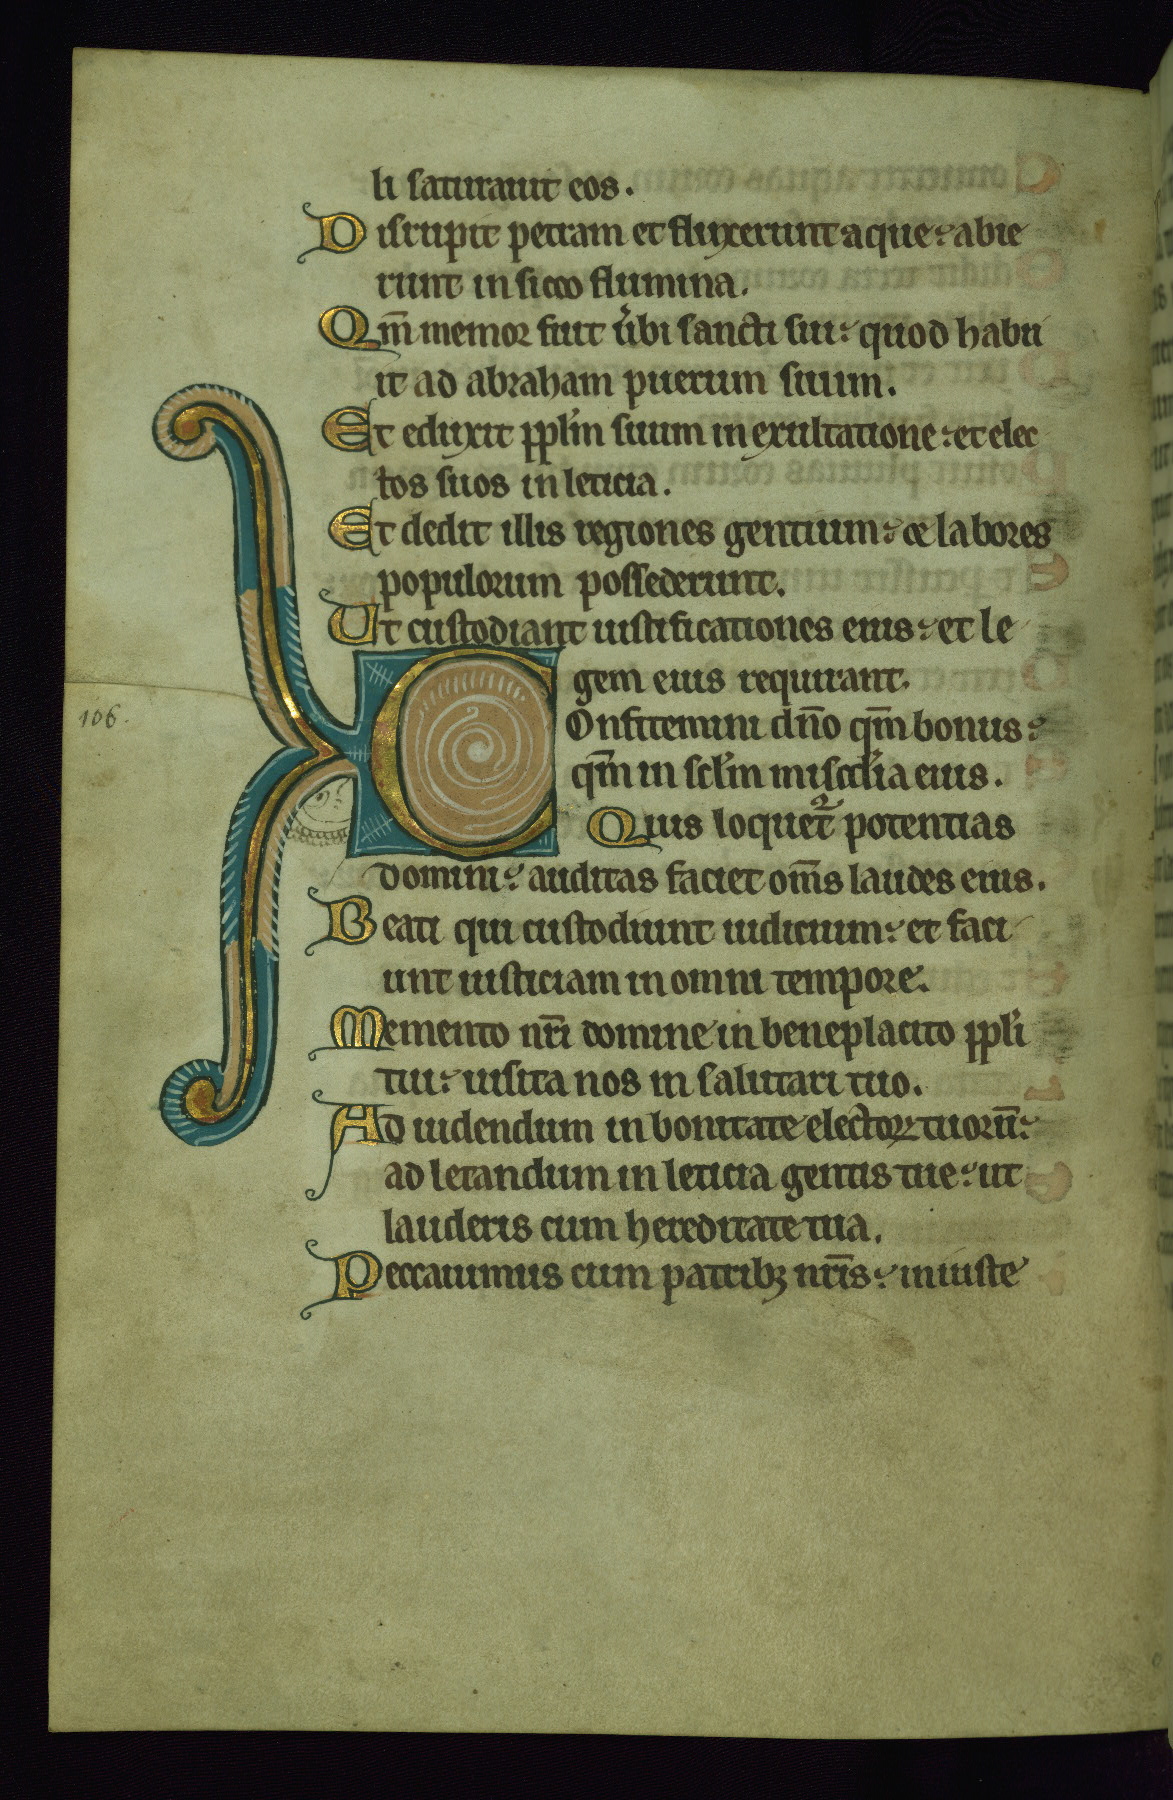 li saturauit eos.
Disrupit petram et fluxerunt aque: abie
runt in sicco flumina.
Qm̄ memor fuit ũbi sancti sui: quod habu
it ad abraham puerum suum.
Et eduxit ppl̃m suum in exultatione: et elec
tos suos in leticia.
Et dedit illis regiones gentium: & labores
populorum possederunt.
Ut custodiant iustificationes eius: et le
gem eius requirant.
106.
Confitemini dn̄o qm̄ bonus:
qm̄ in scl̃m mis̃cdia eius.
Quis loquet᷑ potentias
domini: auditas faciet om̄s laudes eius.
Beati qui custodiunt iudicium: et faci
unt iusticiam in omni tempore.
Memento nr̄i domine in beneplacito ppl̃i
tui: uisita nos in salutari tuo.
Ad uidendum in bonitate electoꝝ tuorū:
ad letandum in leticia gentis tue: ut
lauderis cum hereditate tua.
Peccauimus cum patribꝫ nr̄is: iniuste